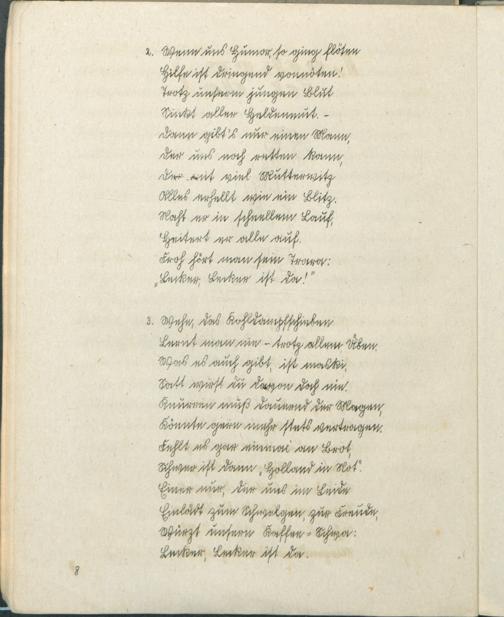 2. Wenn uns Humor, so ging flöten
Hilfe ist dringend vonnöten!
Trotz unserm jungen Blut
Sinkt aller Heldenmut. -
Dann gibt's nur einen Mann,
Der uns noch retten kann,
Der mit viel Mutterwitz
Alles erhellt wie ein Blitz.
Naht er in schnellem Lauf,
Heitert er alle auf.
Froh hört man sein Trara:
„Lecker, Lecker ist da!"
3. Wehe, das Kohldampfschieben
Lernt man nie - trotz allem Üben.
Was es auch gibt, ist maski,
Satt wirst du davon doch nie!
Knurren muß dauernd der Magen,
Könnte gern mehr stets vertragen.
Fehlt es gar einmal an Brot,
Schwer ist dann „Holland in Not".
Einer nur, der uns im Leide
Einlädt zum Schwelgen, zur Freude,
Würzt unsern Kaffee-Schwa:
Lecker, Lecker ist da.
8